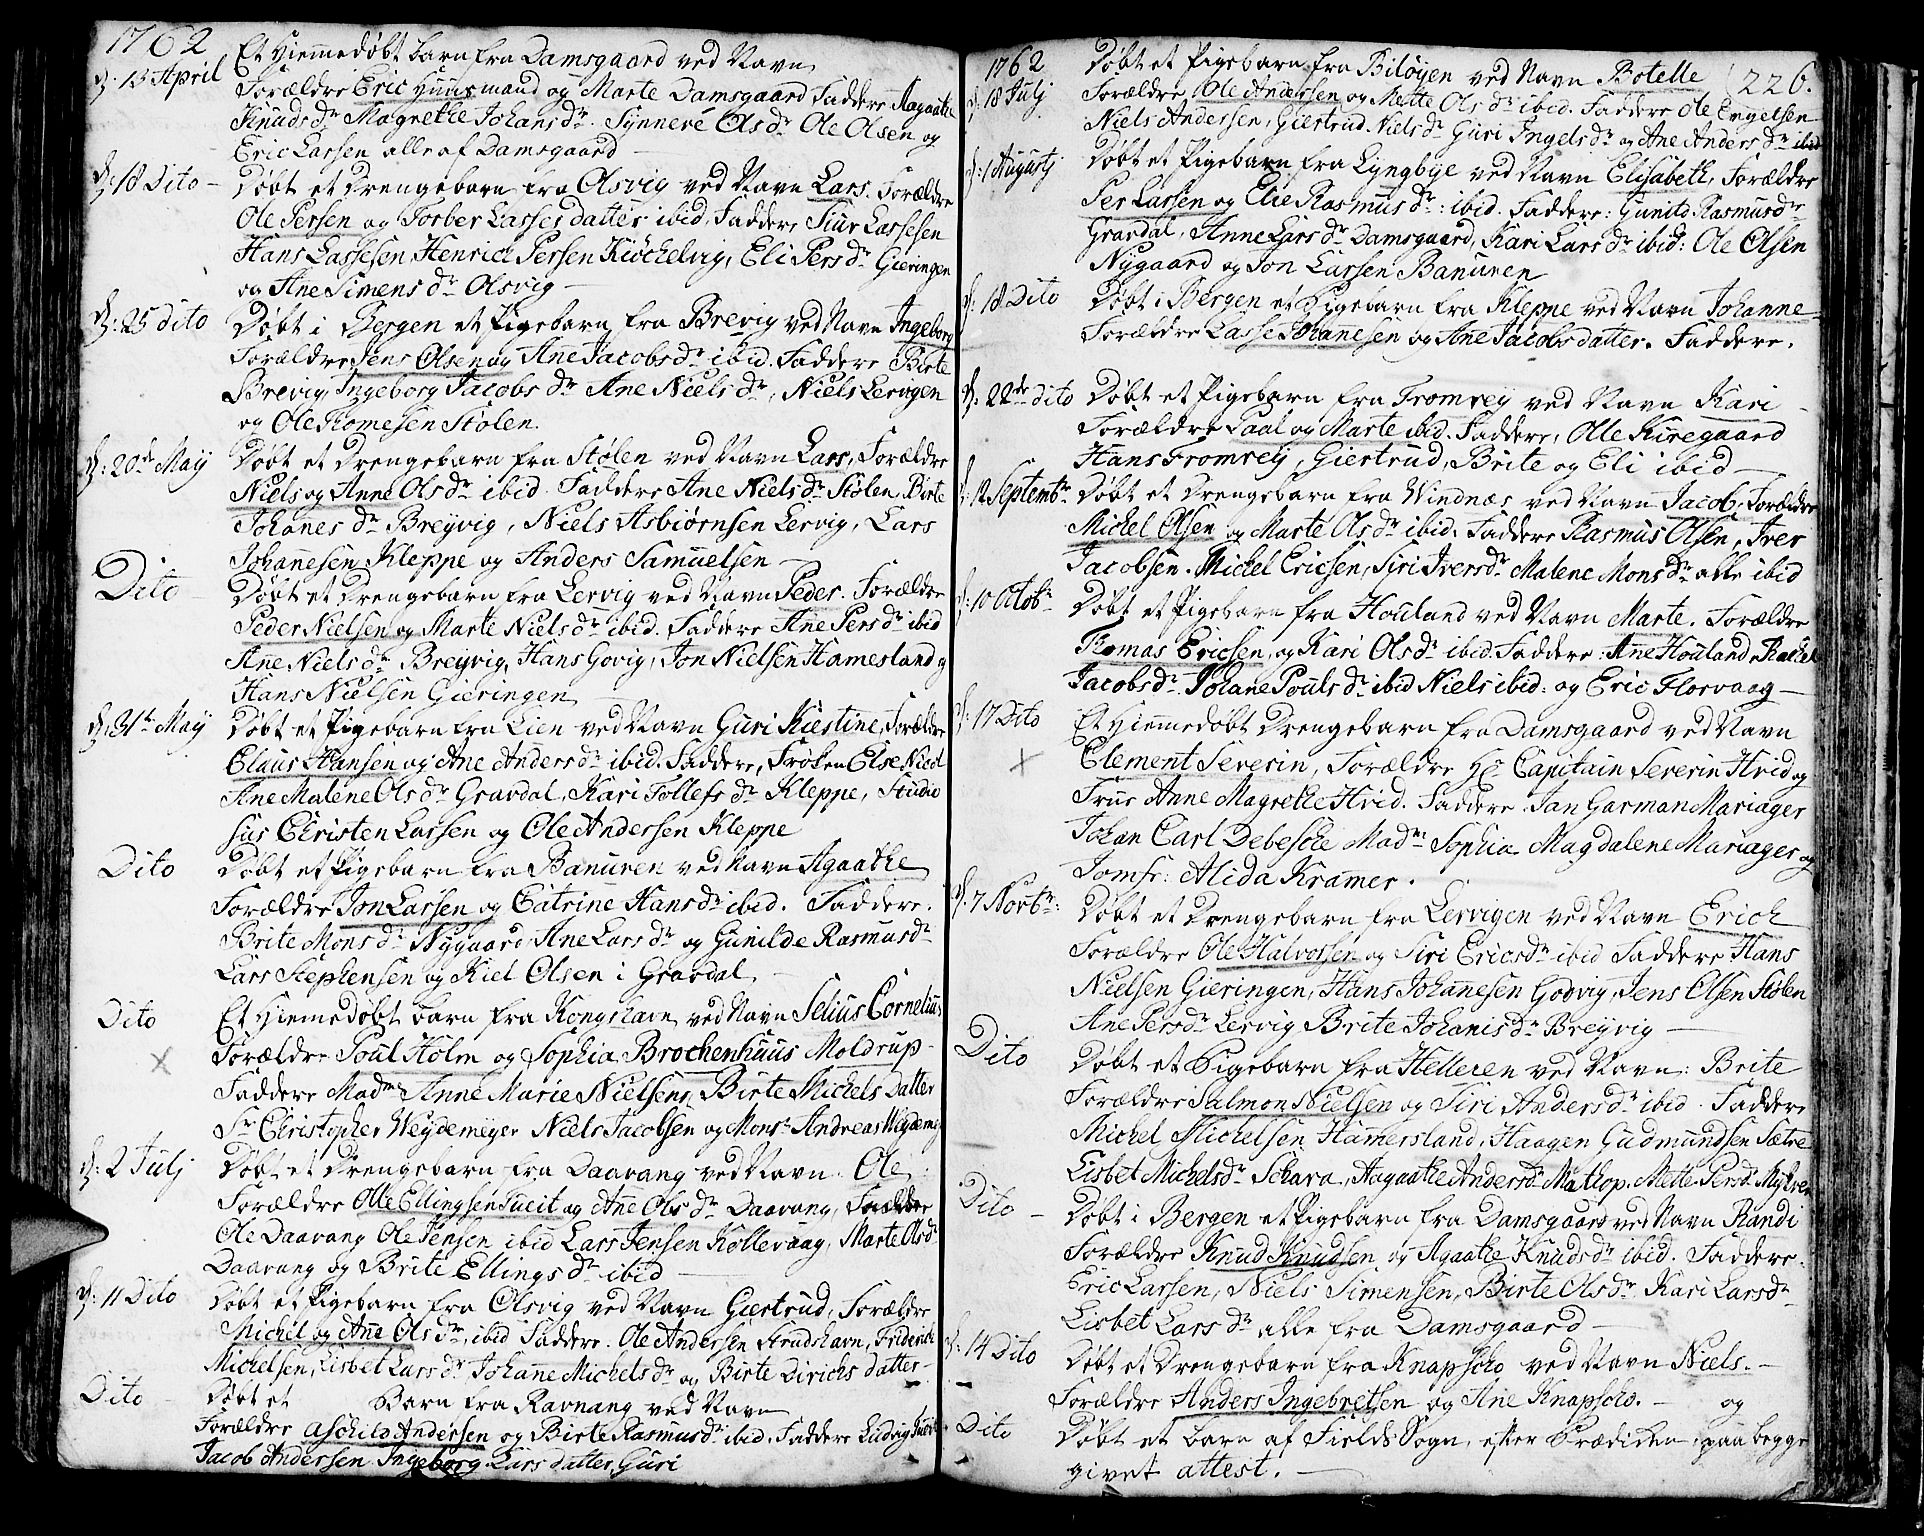 1762
d: 13 April Et Hiemmedøbt barn fra Damsgaard ved Navn
Forældre Eric Huusmand og Marte Damsgaard Faddere Aagaathe
Knuds dr Magrethe Johans dr. Synneve Ols dr Ole Olsen og
Eric Larsen alle af Damsgaard
d: 18 Dito - Døbt et Drengebarn fra Olsvig ved Navn Lars. Forældre
Ole Persen og Torber Lasses datter ibid. Faddere Siur Lassesen
Hans Lassesen, Henrich Persen Kiøckelvig, Eli Pers dr Gieringen
og Ane Simens dr Olsvig -
d: 25 dito Døbt i Bergen et Pigebarn fra Brevig ved Navn Ingeborg
Forældre Jens Olsen og Ane Jacobs dr ibid. Faddere Birte
Brevig, Ingeborg Jacobs dr Ane Niels dr, Niels Lervigen
og Ole Thomesen Stølen.
d: 20de Maij Døbt et Drengebarn fra Stølen ved Navn Lars, Forældre
Niels og Anne Ols dr ibid. Faddere Ane Niels dr Stølen, Birte
Johanes dr Breyvig, Niels Asbiørnsen Lervig, Lars
Johanesen Kleppe og Anders Samuelsen
Dito - Døbt et Drengebarn fra Lervig ved Navn Peder. Forældre
Peder Nielsen og Marte Niels dr ibid. Faddere Ane Pers dr ibid
Ane Niels dr Breyvig, Hans Govig, Jon Nielsen Hamesland og
Hans Nielsen Gieringen
d: 31te Maij Døbt et Pigebarn fra Lien ved Navn Guri Kiestine, Forældre
Claus Hansen og Ane Anders dr ibid. Faddere, Frøken Else
Ane Malene Ols dr Gravdal, Kari Tollefs dr Kleppe, Studio
sus Christen Larsen og Ole Andersen Kleppe
Dito Døbt et Pigebarn fra Banuren ved Navn Agaathe
Forældre Jon Larsen og Catrine Hans dr ibid. Faddere.
Brite Mons dr Nygaard Ane Lars dr og Gunilde Rasmus dr
Lars Stephensen og Kiel Olsen i Gravdal. -
Dito Et Hiemmedøbt barn fra Kongshavn ved Navn Selius Cornelius
Forældre Poul Holm og Sophia Brochenhuus Moldrup -
Faddere Madme Anne Marie Nielsen, Birte Michels Datter
Sr Christopher Weydemeyer Niels Jacobsen og Monsr Andreas
d: 2 Julj Døbt et Drengebarn fra Daavang ved Navn Ole
Forældre Olle Ellingsen og Ane Ols dr Daavang, Faddere
Ole Daavang Ole Jensen ibid Lars Jensen Koltevaag, Marte Ols dr
Daavang og Brite Ellings dr ibid
d: 11 Dito Døbt et Pigebarn fra Olsvig ved Navn Giertrud, Forældre
Michel og Ane Ols dr, ibid Faddere. Ole Andersen Strudshavn, Friderich
Michelsen, Lisbet Lars dr Johane Michels dr og Birte Dirichs Datter -
Dito Døbt et Barn fra Ravnang ved Navn
Forældre Aschild Andersen og Birte Rasmus dr ibid. Faddere Ludvig
Jacob Andersen Ingeborg Lars datter, Guri
1762 Døbt et Pigebarn fra Biløyen ved Navn Botelle 226.
d: 18 Julj Forældre Ole Andersen og Mette Ols dr ibid. Faddere Ole Engelsen
Niels Andersen, Giertrud Niels dr Guri Ingels dr og Ane Anders dr ibid
d: 1 Augustj Døbt et Pigebarn fra Lyngbye ved Navn Elisabeth, Forældre
Per Larsen og Elie Rasmus dr: ibid. Faddere: Gunild Rasmus dr
Gravdal, Anne Lars dr Damsgaard, Kari Lars dr ibid: Ole Olsen
Nygaard og Jon Larsen Banuren
d: 18 Dito Døbt i Bergen et Pigebarn fra Kleppe ved Navn Johanne
Forældre Lasse Johanesen og Ane Jacobs datter. Faddere.
d: 22de dito Døbt et Pigebarn fra Fromrey ved Navn Kari
Forældre Paal og Marte ibid. Faddere, Olle Kiregaard
Hans Fromrey, Giertrud, Brite og Eli ibid
d: 12 Septembr Døbt et Drengebarn fra Windnæs ved Navn Jacob, Forældre
Michel Olsen og Marte Ols dr ibid. Faddere Rasmus Olsen, Iver
Jacobsen. Michel Ericsen, Siri Ivers dr Malene Mons dr alle ibid
d: 10 Octobr Døbt et Pigebarn fra Houland ved Navn Marte. Forældre
Thomas Ericsen, og Kari Ols dr ibid. Faddere. Ane Houland, Rachel
Jacobs dr. Johane Pouls dr ibid Niels ibid: og Eric Florvaag -
d: 17 Dito Et Hiemmedøbt Drengebarn fra Damsgaard ved Navn
Clement Severin, Forældre Hr Capitain Severin Hvid og
Frue Anne Magrethe Hvid. Faddere Jan Garman Mariager
Johan Carl Debesche Madme Sophia Magdalene Mariager og
Jomfr: Alida Kramer.
d: 7 Novbr: Døbt et Drengebarn fra Lervigen ved Navn Erich
Forældre Ole Halvorsen og Siri Erics dr ibid Faddere Hans
Nielsen Gieringen, Hans Johanesen Godvig, Jens Olsen Stølen
Ane Pers dr Lervig Brite Johanis dr Breyvig -
Dito Døbt et Pigebarn fra Helleren ved Navn: Brite
Forældre Salmon Nielsen og Siri Anders dr ibid. Faddere
Michel Michelsen Hamersland, Haagen Gudmundsen Sætre
Lisbet Michels dr Schara, Aagaathe Anders dr Mathop. Mette Pers dr
Dito - Døbt i Bergen et Pigebarn fra Damsgaard ved Navn Randi
Forældre Knud Knudsen og Agaathe Knuds dr ibid. Faddere.
Eric Larsen, Niels Simensen, Birte Ols dr Kari Lars dr
Lisbet Lars dr alle fra Damsgaard -
d: 14 Dito Døbt et Drengebarn fra Knapskho ved Navn Niels. -
Forældre Anders Ingebretsen og Ane Knapskho. - og
Dito Døbt et barn af Fields Sogn, efter Prædiken, paa begge
givet attest. -